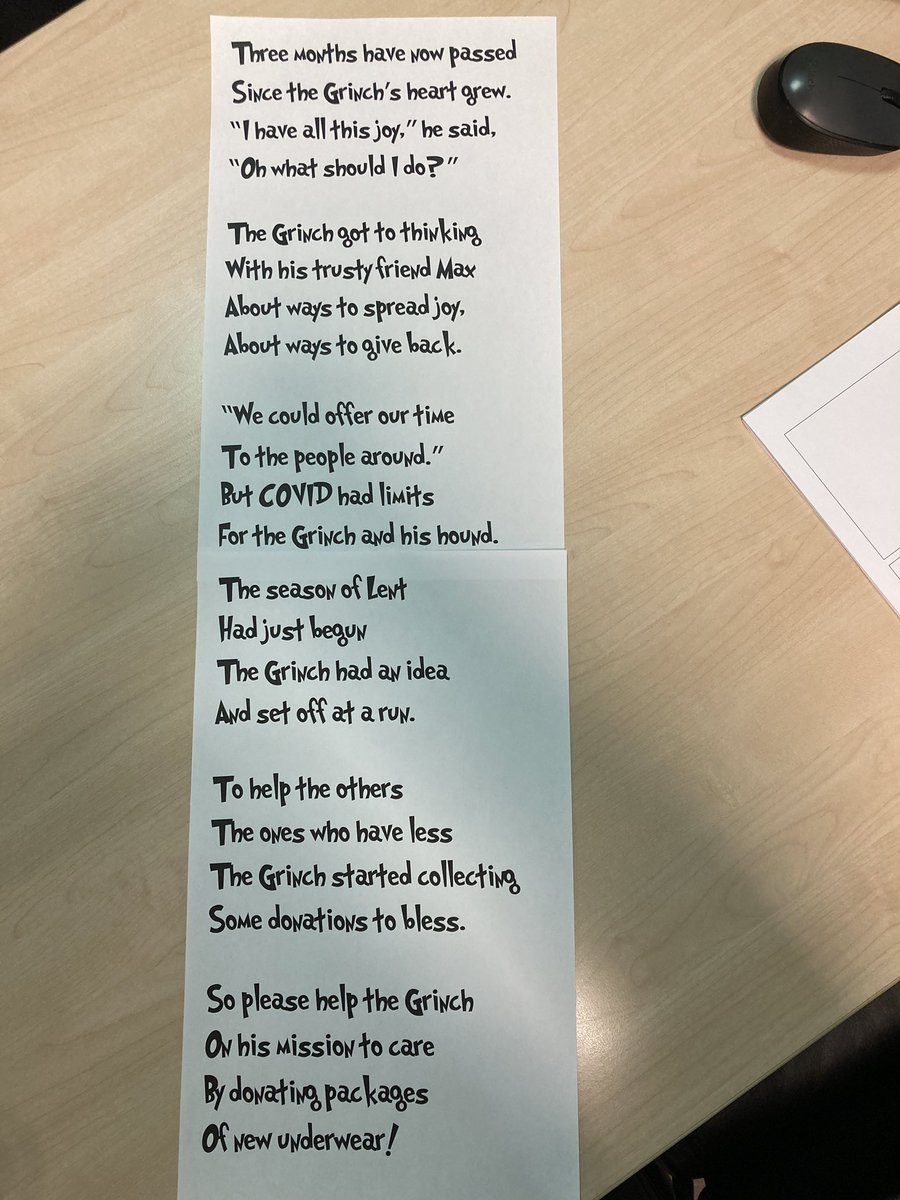 Three months have now passed
Since the Grinch's heart grew.
"I have all this joy," he said,
"Oh what should I do?"
The Grinch got to thinking
With his trusty friend Max
About ways to spread joy,
About ways to give back.
"We could offer our time
To the people around."
But COVID had limits
For the Grinch and his hound.
The season of Lent
Had just begun
The Grinch had an idea
And set off at a run.
To help the others
The ones who have less
The Grinch started collecting
Some donations to bless.
So please help the Grinch
On his mission to care
By donating packages
Of new underwear!